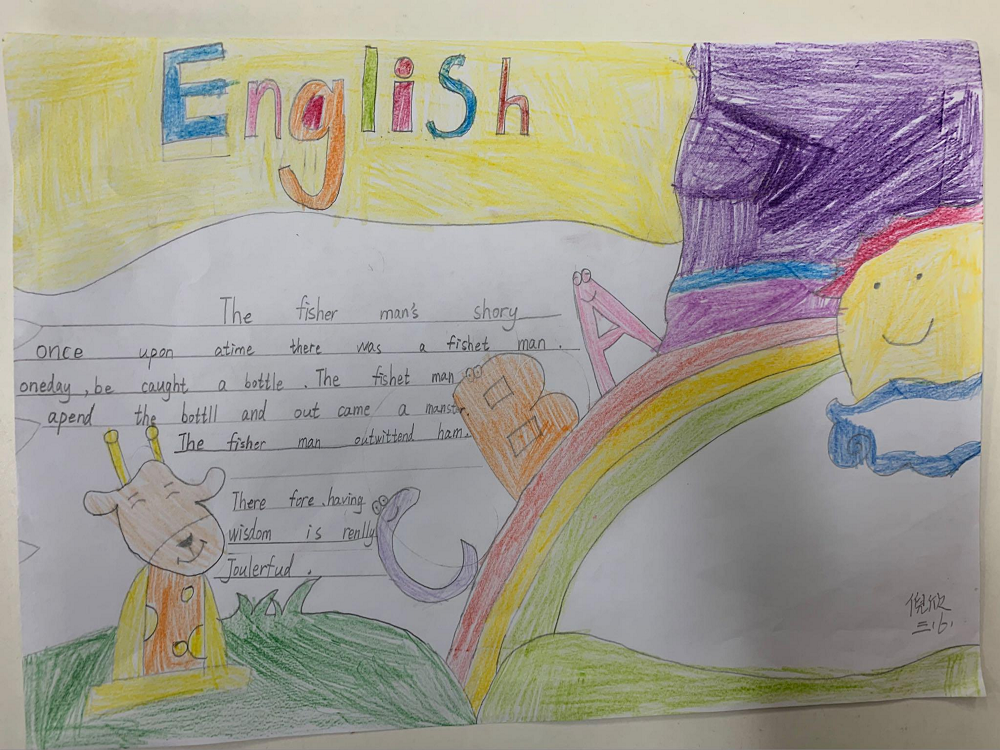 English
The fisher man's shory
once upon atime there was a fishet man.
oneday, be caught a bottle. The fishet man
apend the bottll and out came a manstr.
The fisher man outwittend ham.
There fore, having
wisdom is renlly
Joulerfud.
A
B
C
倪欣
三.6.